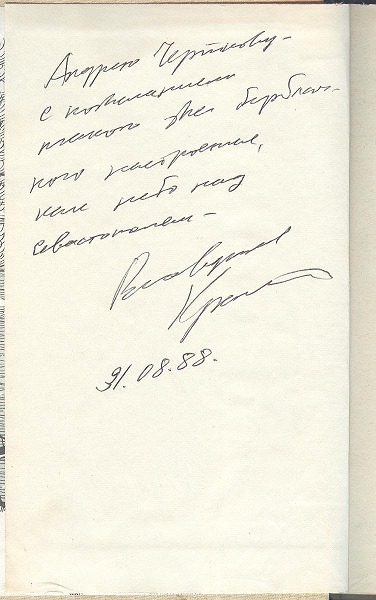 Андрею Черткову –
с пожеланием
такого же безоблач-
ного настроения,
как небо над
Севастополем –
Владислав
31.08.88.